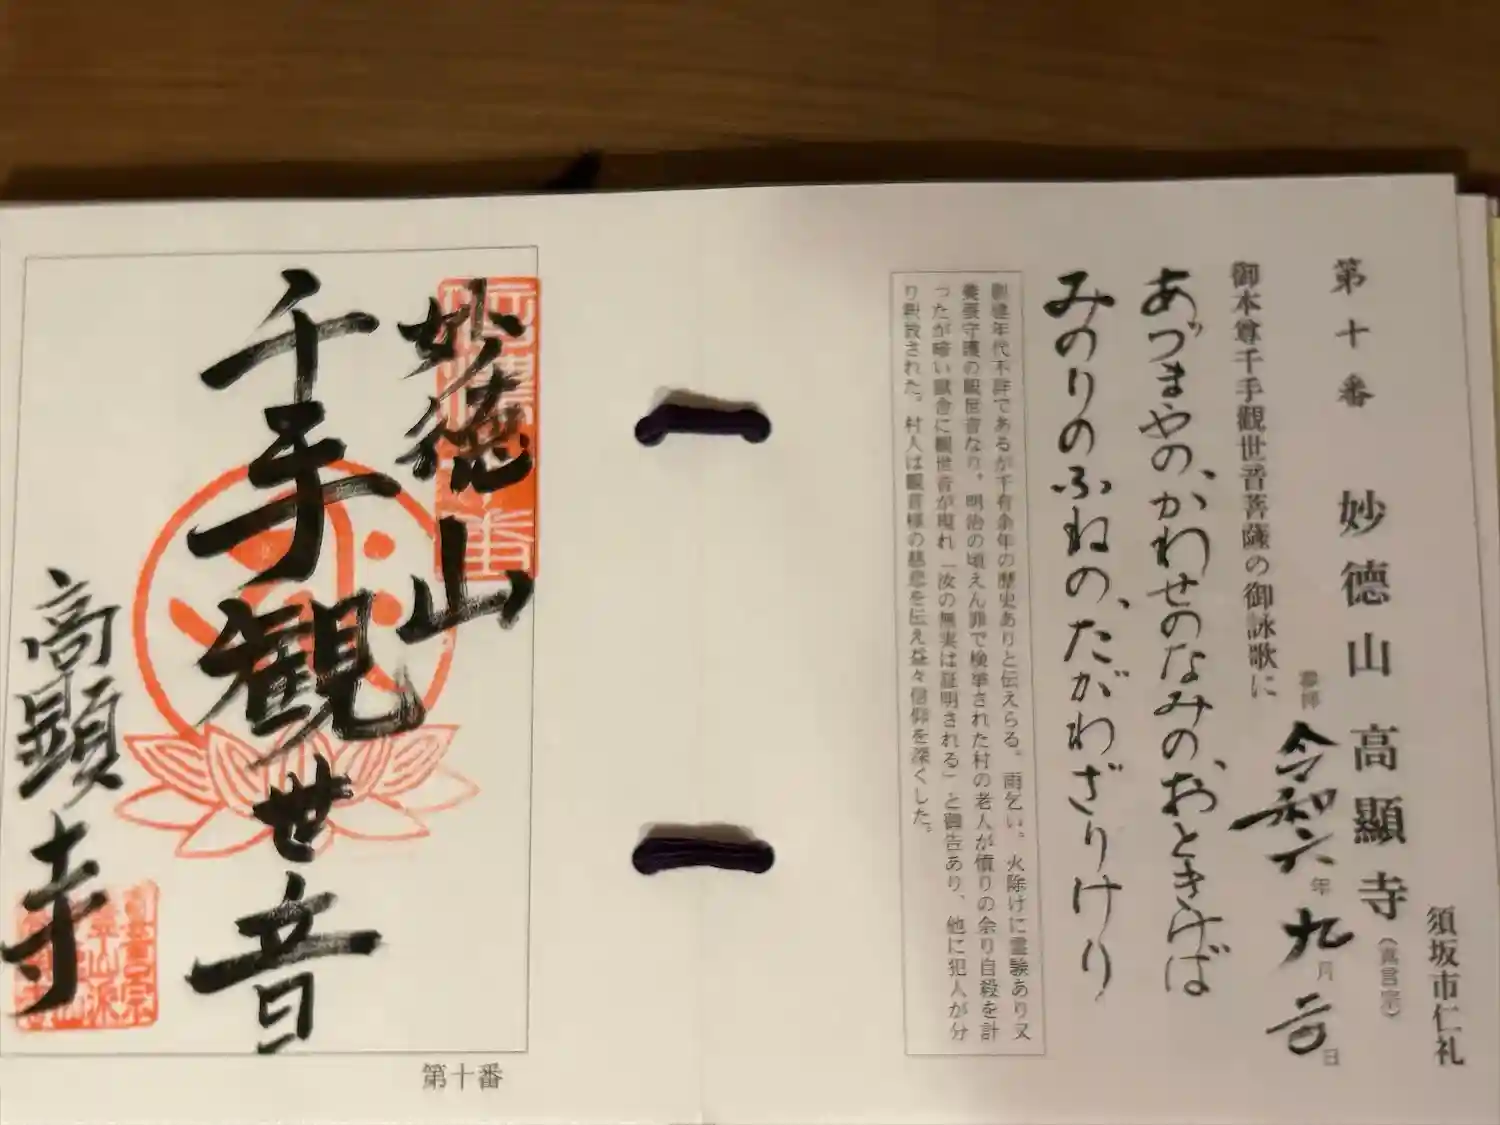 第十番 妙德山高顯寺(真言宗)
須坂市仁礼
令和六年九月 日
御本尊千手觀世音菩薩の御詠歌に
あづまやの、かわせのなみの、おときけば
みのりのふねの、たがわざりけり
創建年代不詳であるが千有余年の歴史ありと伝えらる。雨乞い。火除けに霊験あり又
養蚕守護の観世音なり。明治の頃えん罪で検挙された村の老人が憤りの余り自殺を計
ったが暗い獄舎に観世音が現れ「汝の無実は証明される」と御告あり、他に犯人が分
り釈放された。村人は観音様の慈悲を伝え益々信仰を深くした。
妙德山
千手觀世音
高顯寺
第十番